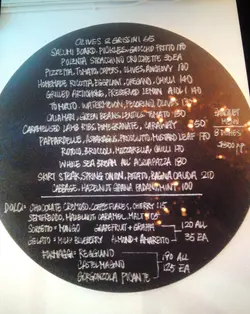 OLIVES & GRISSINI 65
SALUMI BOARD, PICKLES, GNOCCHO FRITTO 170
POLENTA, STRACCHINO CROCHETTE 35 EA
PIZZETTA, TOMATO, CAPERS, OLIVES, ANCHOVY 100
HOMEMADE RICOTTA, EGGPLANT, OREGANO, CHILLI 140
GRILLED ARTICHOKE, PRESERVED LEMON, AIOLI 170
TOMATO, WATERMELON, PECORINO, OLIVES
CALAMARI, GREEN BEANS, LENTILS, TOMATO 130
CARAMELISED LAMB RIBS, POMEGRANATE, CARAWAY
PAPPARDELLE, ASPARAGUS, PROSCIUTTO, MUSTARD LEAF 170
ROTOLO, BROCCOLI, MOZZARELLA, CHILLI 170
WHOLE SEA BREAM ALL' ACQUAPAZZA 180
SHORT STEAK, SPRING ONION, POTATO, BAGNA CAUDA 210
CABBAGE, HAZELNUT, GRANA PADANO, MINT 100
DOLCI: CHOCOLATE CREMOSO, COFFEE FLAKES, CHERRY 115
SEMIFREDDO, HAZELNUT, CARAMEL, MALT
SORBETTO = MANGO GRAPEFRUIT & GRAPPA 120 ALL
GELATO = MILK BLUEBERRY ALMOND & AMARETTO 35 EA
FORMAGGI = REGGIANO 190 ALL
CASTELMAGNO 125 EA
GORGONZOLA PICANTE